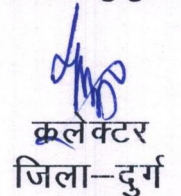 कलेक्टर
जिला–दुर्ग